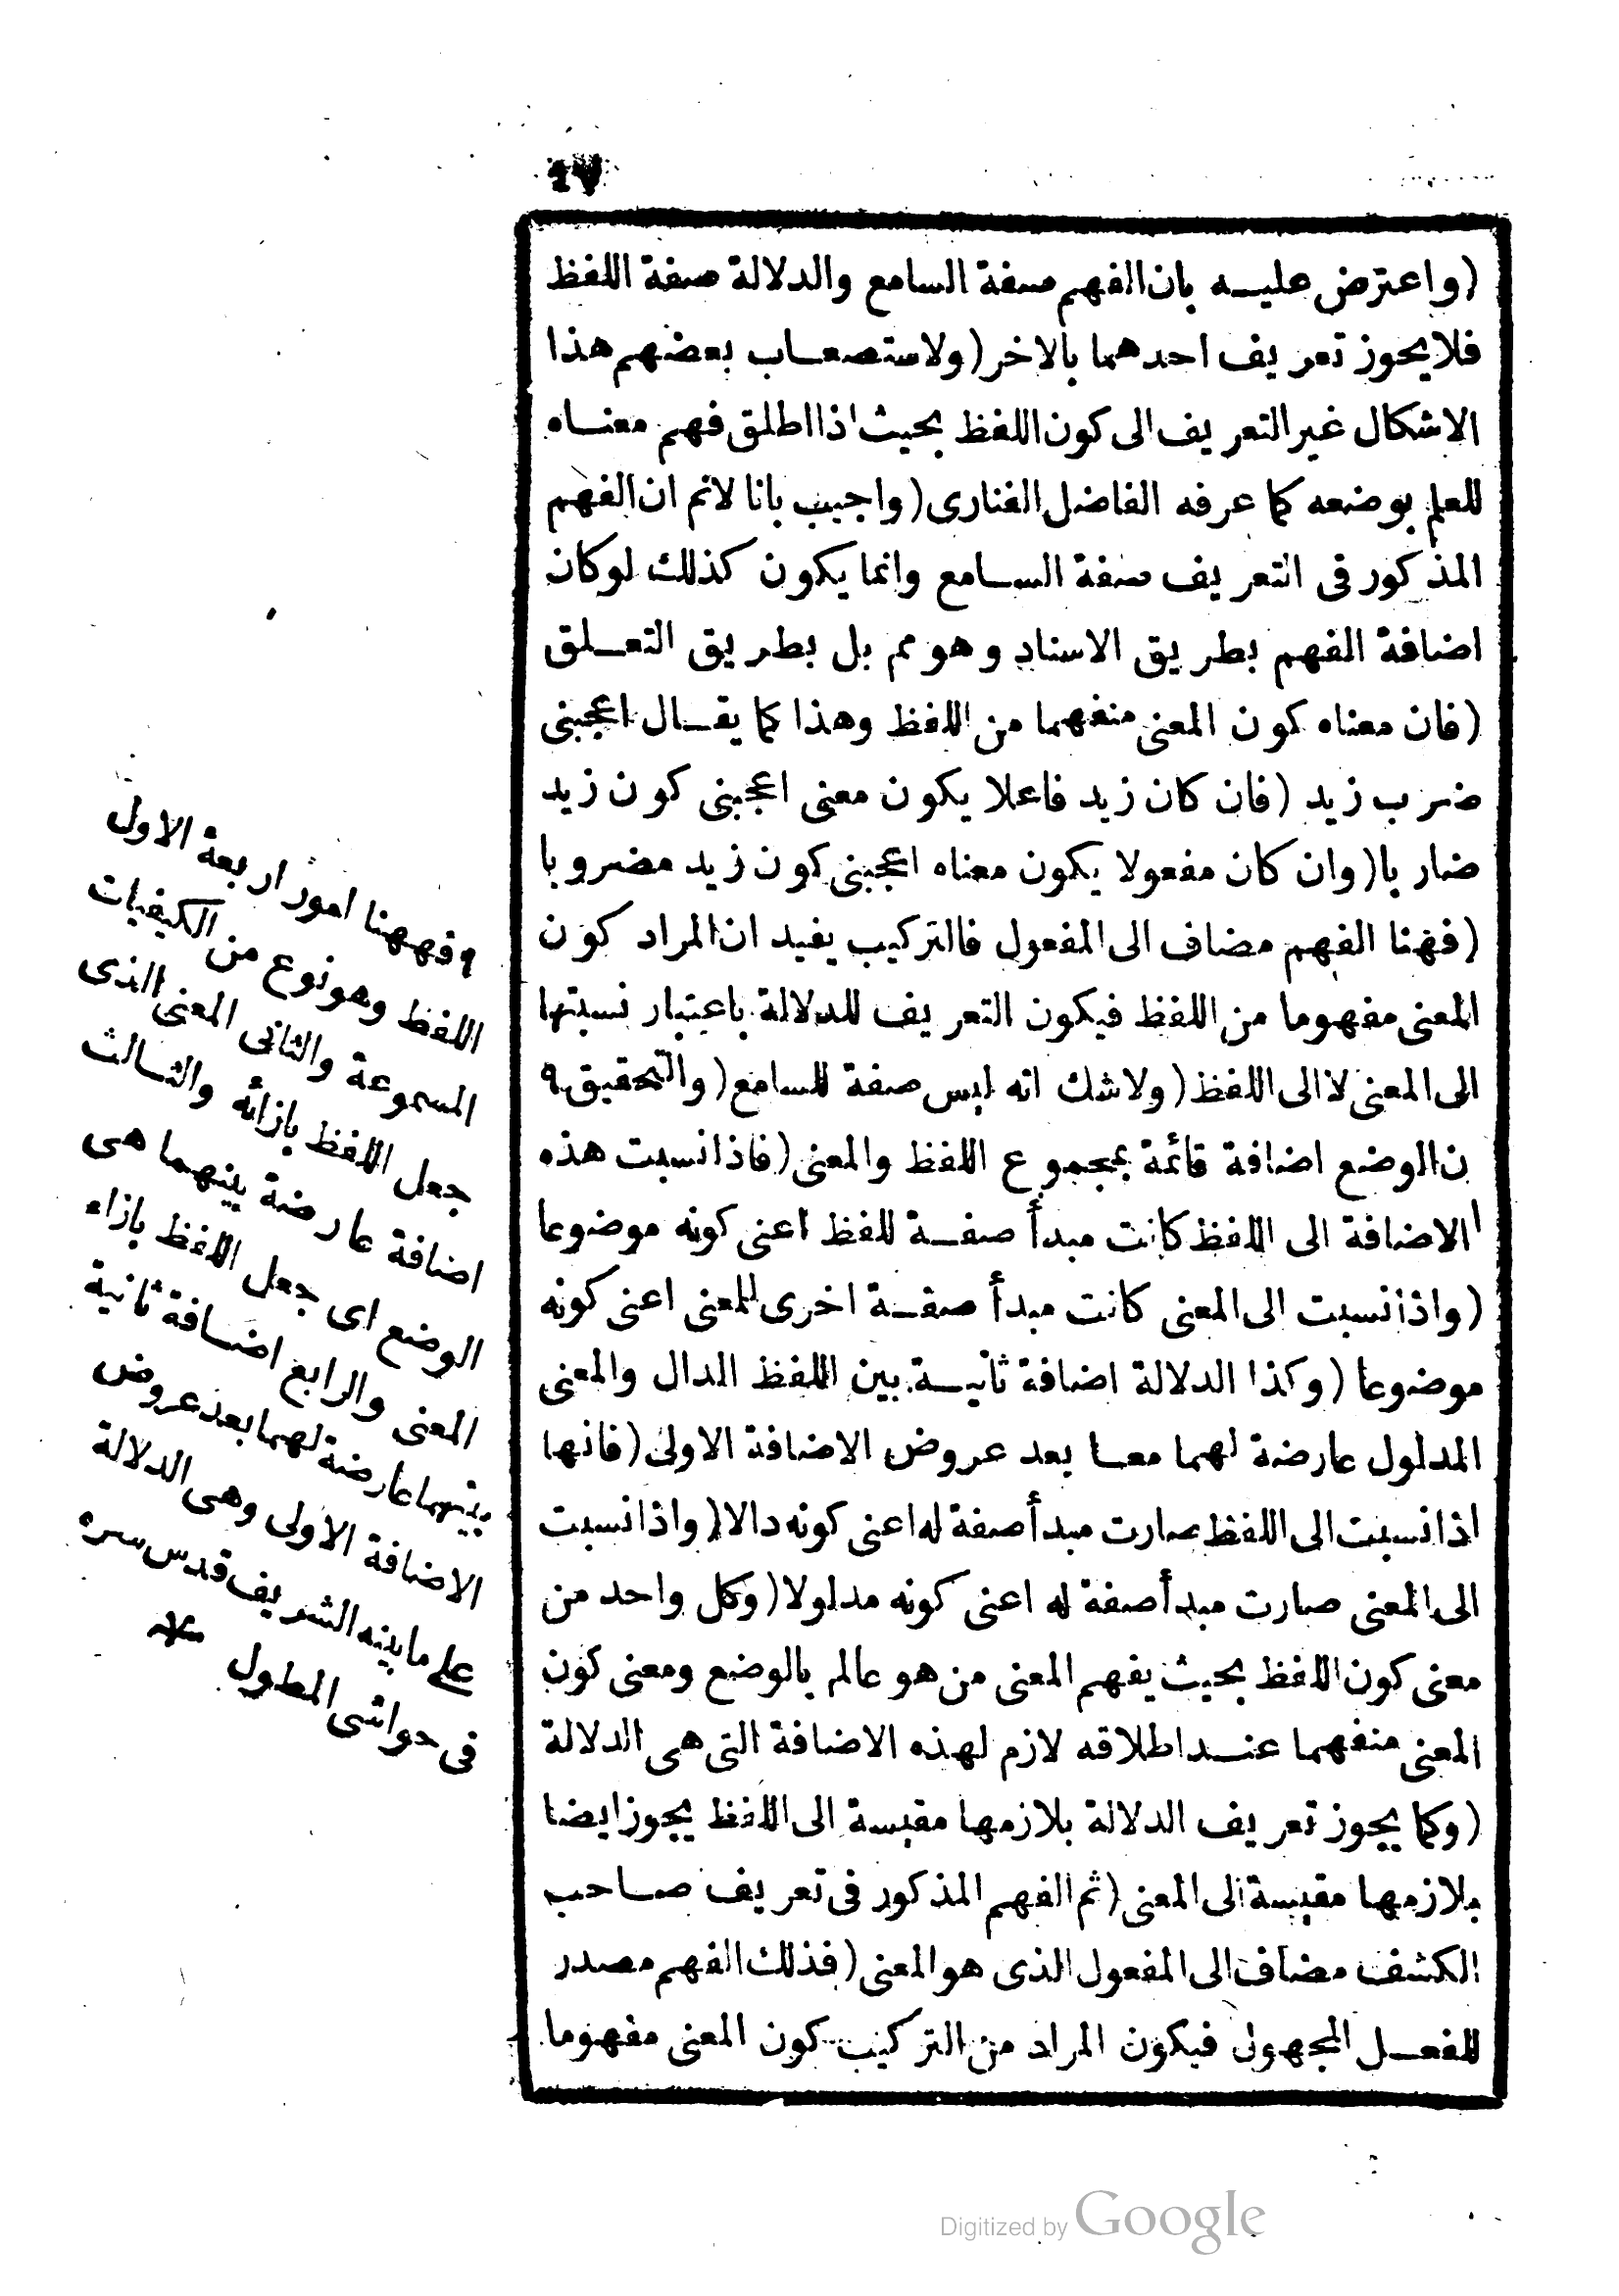 ١٧
(واعترض عليه بان الفهم صفة السامع والدلالة صفة اللفظ
فلا يجوز تعريف احدهما بالاخر (ولاستصعاب بعضهم هذا
الاشكال غير التعريف الى كون اللفظ بحيث اذا اطلق فهم معناه
للعلم بوضعه كما عرفه الفاضل الفنارى (واجيب بانا لانم ان الفهم
المذكور فى التعريف صفة السامع وانما يكون كذلك لوكان
اضافة الفهم بطريق الاسناد وهو مم بل بطريق التعلق
(فان معناه كون المعنى منفهما من اللفظ وهذا كما يقال اعجبنى
ضرب زيد (فان كان زيد فاعلا يكون معنى اعجبنى كون زيد
ضاربا (وان كان مفعولا يكون معناه اعجبنى كون زيد مضروبا
(فههنا الفهم مضاف الى المفعول فالتركيب يفيد ان المراد كون
المعنى مفهوما من اللفظ فيكون التعريف للدلالة باعتبار نسبتها
الى المعنى لا الى اللفظ (ولاشك انه ليس صفة للسامع (والتحقيق ٩
ن الوضع اضافة قائمة بمجموع اللفظ والمعنى (فاذا نسبت هذه
ا الاضافة الى اللفظ كانت مبدأ صفة للفظ اعنى كونه موضوعا
(واذا نسبت الى المعنى كانت مبدأ صفة اخرى للمعنى اعنى كونه
موضوعا (وكذا الدلالة اضافة ثانية بين اللفظ الدال والمعنى
المدلول عارضة لهما معا بعد عروض الاضافة الاولى (فانها
اذا نسبت الى اللفظ صارت مبدأ صفة له اعنى كونه دالا (واذا نسبت
الى المعنى صارت مبدأ صفة له اعنى كونه مدلولا (وكل واحد من
معنى كون اللفظ بحيث يفهم المعنى من هو عالم بالوضع ومعنى كون
المعنى منفهما عند اطلاقه لازم لهذه الاضافة التى هى الدلالة
(وكما يجوز تعريف الدلالة بلازمها مقيسة الى اللفظ يجوز ايضا
بلازمها مقيسة الى المعنى (ثم الفهم المذكور فى تعريف صاحب
الكشف مضاف الى المفعول الذى هو المعنى (فذلك الفهم مصدر
للفعل المجهول فيكون المراد من التركيب كون المعنى مفهوما
٩ فههنا امور اربعة الاول
اللفظ وهو نوع من الكيفيات
المسموعة والثانى المعنى الذى
جعل اللفظ بازائه والثالث
اضافة عارضة بينهما هى
الوضع اى جعل اللفظ بازاء
المعنى والرابع اضافة ثانية
بينهما عارضة لهما بعد عروض
الاضافة الاولى وهى الدلالة
على ما بينه الشريف قدس سره
فى حواشى المطول *
Digitized by Google